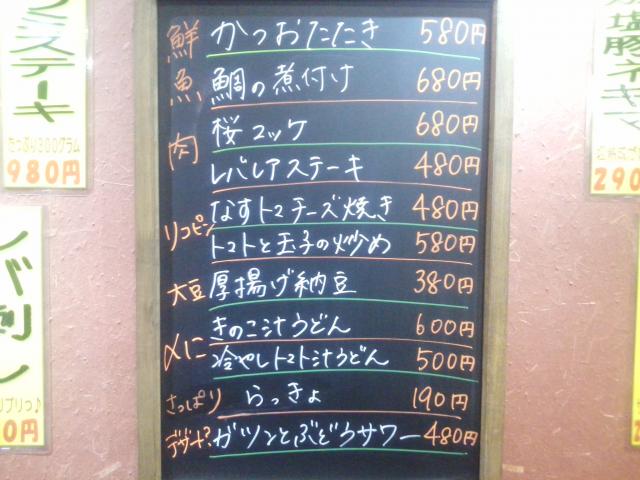 鮮魚
かつおたたき 580円
鯛の煮付け 680円
肉
桜ユッケ 680円
レバレアステーキ 480円
リコピン
なすトマチーズ焼き 480円
トマトと玉子の炒め 580円
大豆 厚揚げ納豆 380円
〆に
きのこ汁うどん 600円
冷やしトマト汁うどん 500円
さっぱり らっきょ 190円
デザート? ガツンとぶどうサワー 480円
ステーキ
たっぷり300グラム
980円
バ刺し
プリっ♪
0円
塩豚ネギマ
290